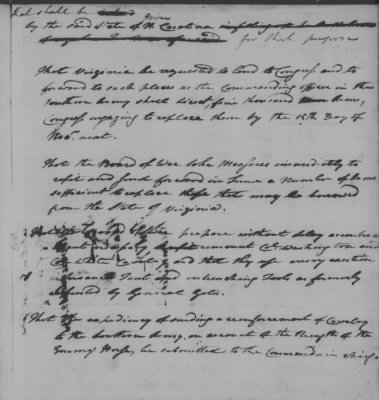 that shall be
by the said State of Carolina
for that purpose
That Virginia be requested to lend to Congress and to
forward to such places as the Commanding officer in the
southern Army shall direct five thousand Arms,
Congress engaging to replace them by the 15th Day of
next.
That the Board of War take Measures immediately to
refit and send forward in time a Number of Arms
sufficient to replace those that may be borrowed
from the State of Virginia.
prepare without delay
Washington and
White Cavalry, and that they
Tents and intrenching Tools as formerly
by General Gates.
That the expediency of sending a reenforcement of Cavalry
to the Southern Army, on account of the strength of the
Enemys Horse, be submitted to the Commander in chief